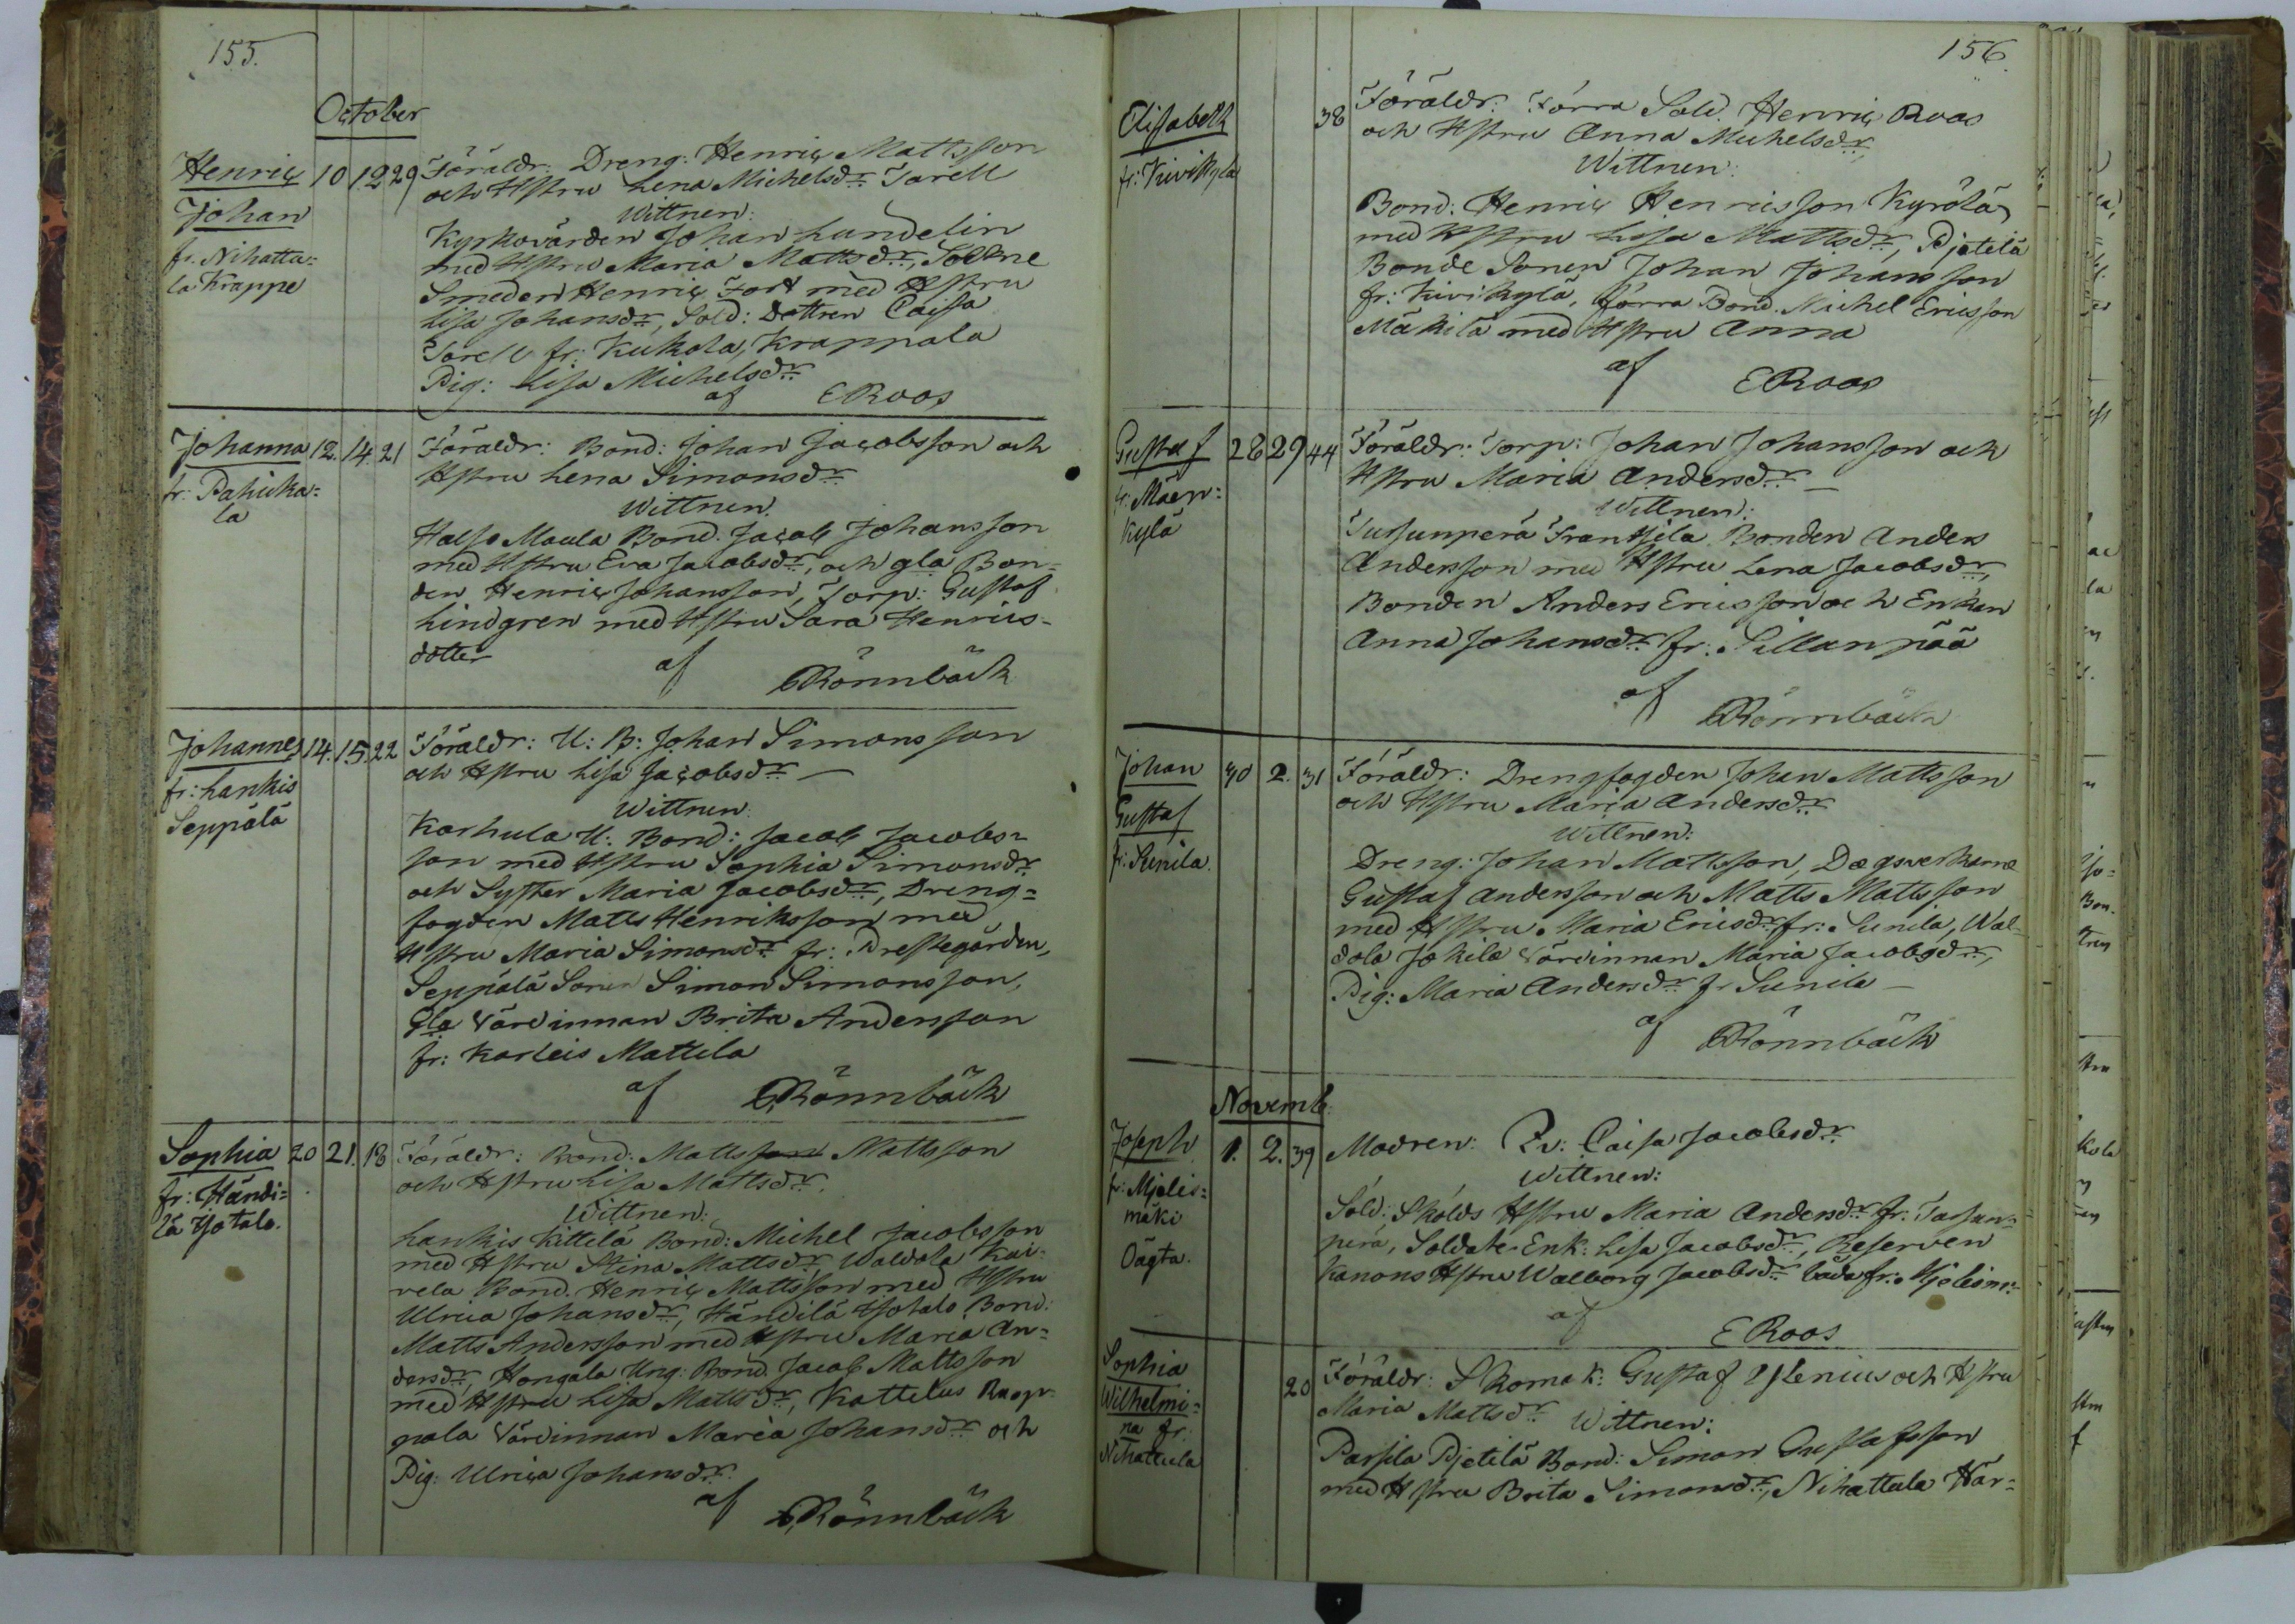 155.
October
Henriç 10 12 29 Föräldr: Dreng: Henriç Mattsson
Johan och Hstru Lena Michelsdr Torell
fr. Nihatta= Wittnen:
la Krappe Kyrkovärden Johan Lundelin
med Hstru Maria Mattsdr, Sockne
Smeden Henriç Fort med Hstru
Lisa Johansdr, Sold: Dottren Caisa
Torell fr: Kukola, Krappala
Pig: Lisa Michelsdr
af ERoos
Johanna 12. 14. 21 Föräldr: Bond: Johan Jacobsson och
fr: Pahicka= Hstru Lena Simonsdr
la Wittnen.
Halso Maula Bond. Jacob Johansson
med Hstru Eva Jacobsdr, och gla Bon=
den Henriç Johansson, Torp: Gustaf
Lindgren med Hstru Sara Henrics=
dotter af Rönnbäck
Johannes 14. 15. 22 Föräldr: U: B: Johan Simonsson
fr: Lankis och Hstru Lisa Jacobsdr —
Seppälä Wittnen
Karhula U: Bond: Jacob Jacobs=
son med Hstru Sophia Simonsdr
och Syster Maria Jacobsdr, Dreng=
fogden Matts Henriksson med
Hstru Maria Simonsdr fr: Prestegården,
Seppälä Sonen Simon Simonsson,
Gla Värdinnan Brita Andersson
fr: Karleis Mattila
af Rönnbäck
Sophia 20 21. 18 Föräldr: Bond: Matts Mattsson
fr: Händi= och Hstru Lisa Mattsdr.
lä Isotalo. Wittnen:
Lankis Kittilä Bond: Michel Jacobsson
med Hstru Stina Mattsdr, Waldola Kai=
vela Bond. Henriç Mattsson med Hstru
Ulrica Johansdr, Händilä Isotalo Bond:
Matts Andersson med Hstru Maria An=
dersdr, Hongala Ung: Bond. Jacob Mattsson
med Hstru Lisa Mattsdr, Kattelus
pala Värdinnan Maria Johansdr och
Pig: Ulrica Johansdr.
af Rönnbäck
156.
Elisabeth 38 Föräldr: Förra Sold. Henriç Roos
och Hstru Anna Michelsdr,
fr: Kivikylä Wittnen:
Bond: Henriç Henricsson Kyrölä
med Hstru Lisa Mattsdr, Pietilä
Bonde Sonen Johan Johansson
fr: Kivikylä, förra Bond. Michel Ericsson
Mäkilä med Hstru Anna
af ERoos
Gustaf 28 29 44 Föräldr: Torp: Johan Johansson och
fr: Mäen= Hstru Maria Andersdr —
kylä Wittnen:
Frantsila Bonden Anders
Andersson med Hstru Lena Jacobsdr,
Bonden Anders Ericsson och Enkan
Anna Johansdr fr: Sillanpää
af Rönnbäck
Johan 30 2. 31 Föräldr: Drengfogden Johan Mattsson
och Hstru Maria Andersdr
Gustaf Wittnen:
fr: Sunila. Dreng: Johan Mattsson, Dagsverkarne
Gustaf Andersson och Matts Mattsson
med Hstru Maria Ericsdr fr: Sunila, Wal=
dola Jokila Värdinnan Maria Jacobsdr,
Pig: Maria Andersdr fr Sunila —
af Rönnbäck
Novemb.
Joseph 1. 2. 39 Modren: Caisa Jacobsdr
fr: Mjelis= Wittnen:
mäki Sold: Skölds Hstru Maria Andersdr fr:
Oägta. perä, Soldate Enk: Lisa Jacobsdr, Reserven
Kanons Hstru Walborg Jacobsdr båda fr: Mjelism:
af ERoos
Sophia 20 Föräldr: Skomak: Gustaf Ylenius och Hstru
Wilhelmi= Maria Mattsdr Wittnen:
na fr: Parsila Pjetilä Bond: Simon Gustafsson
Nihattula med Hstru Brita Simonsdr, Nihattula Här=